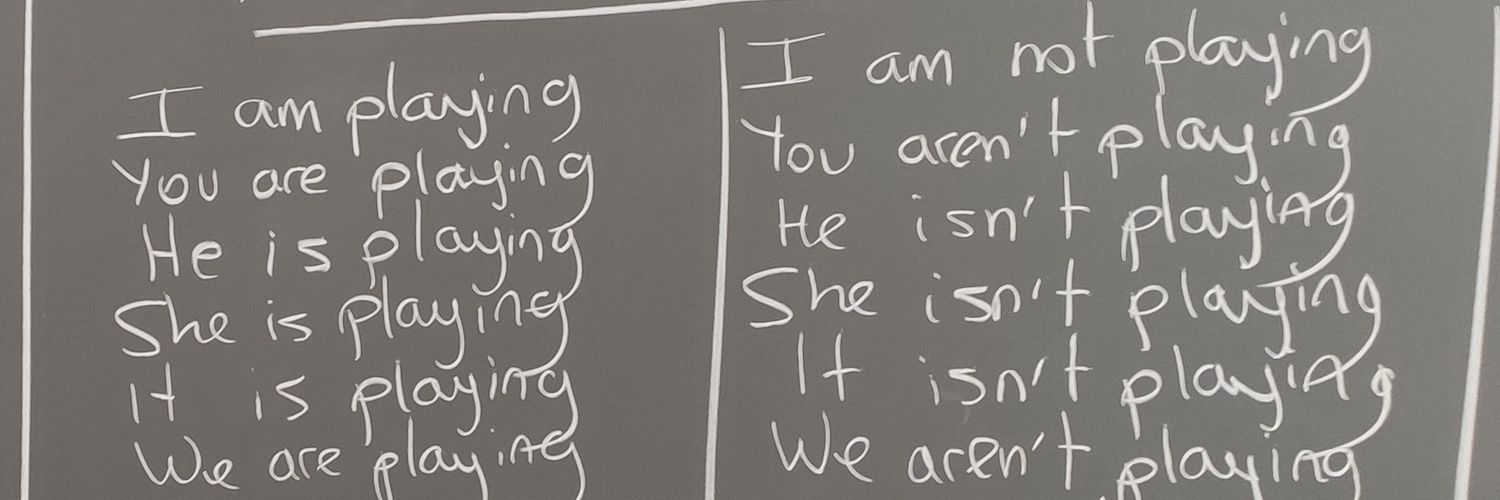 I am playing
You are playing
He is playing
She is playing
It is playing
We are playing
I am not playing
You aren't playing
He isn't playing
She isn't playing
It isn't playing
We aren't playing